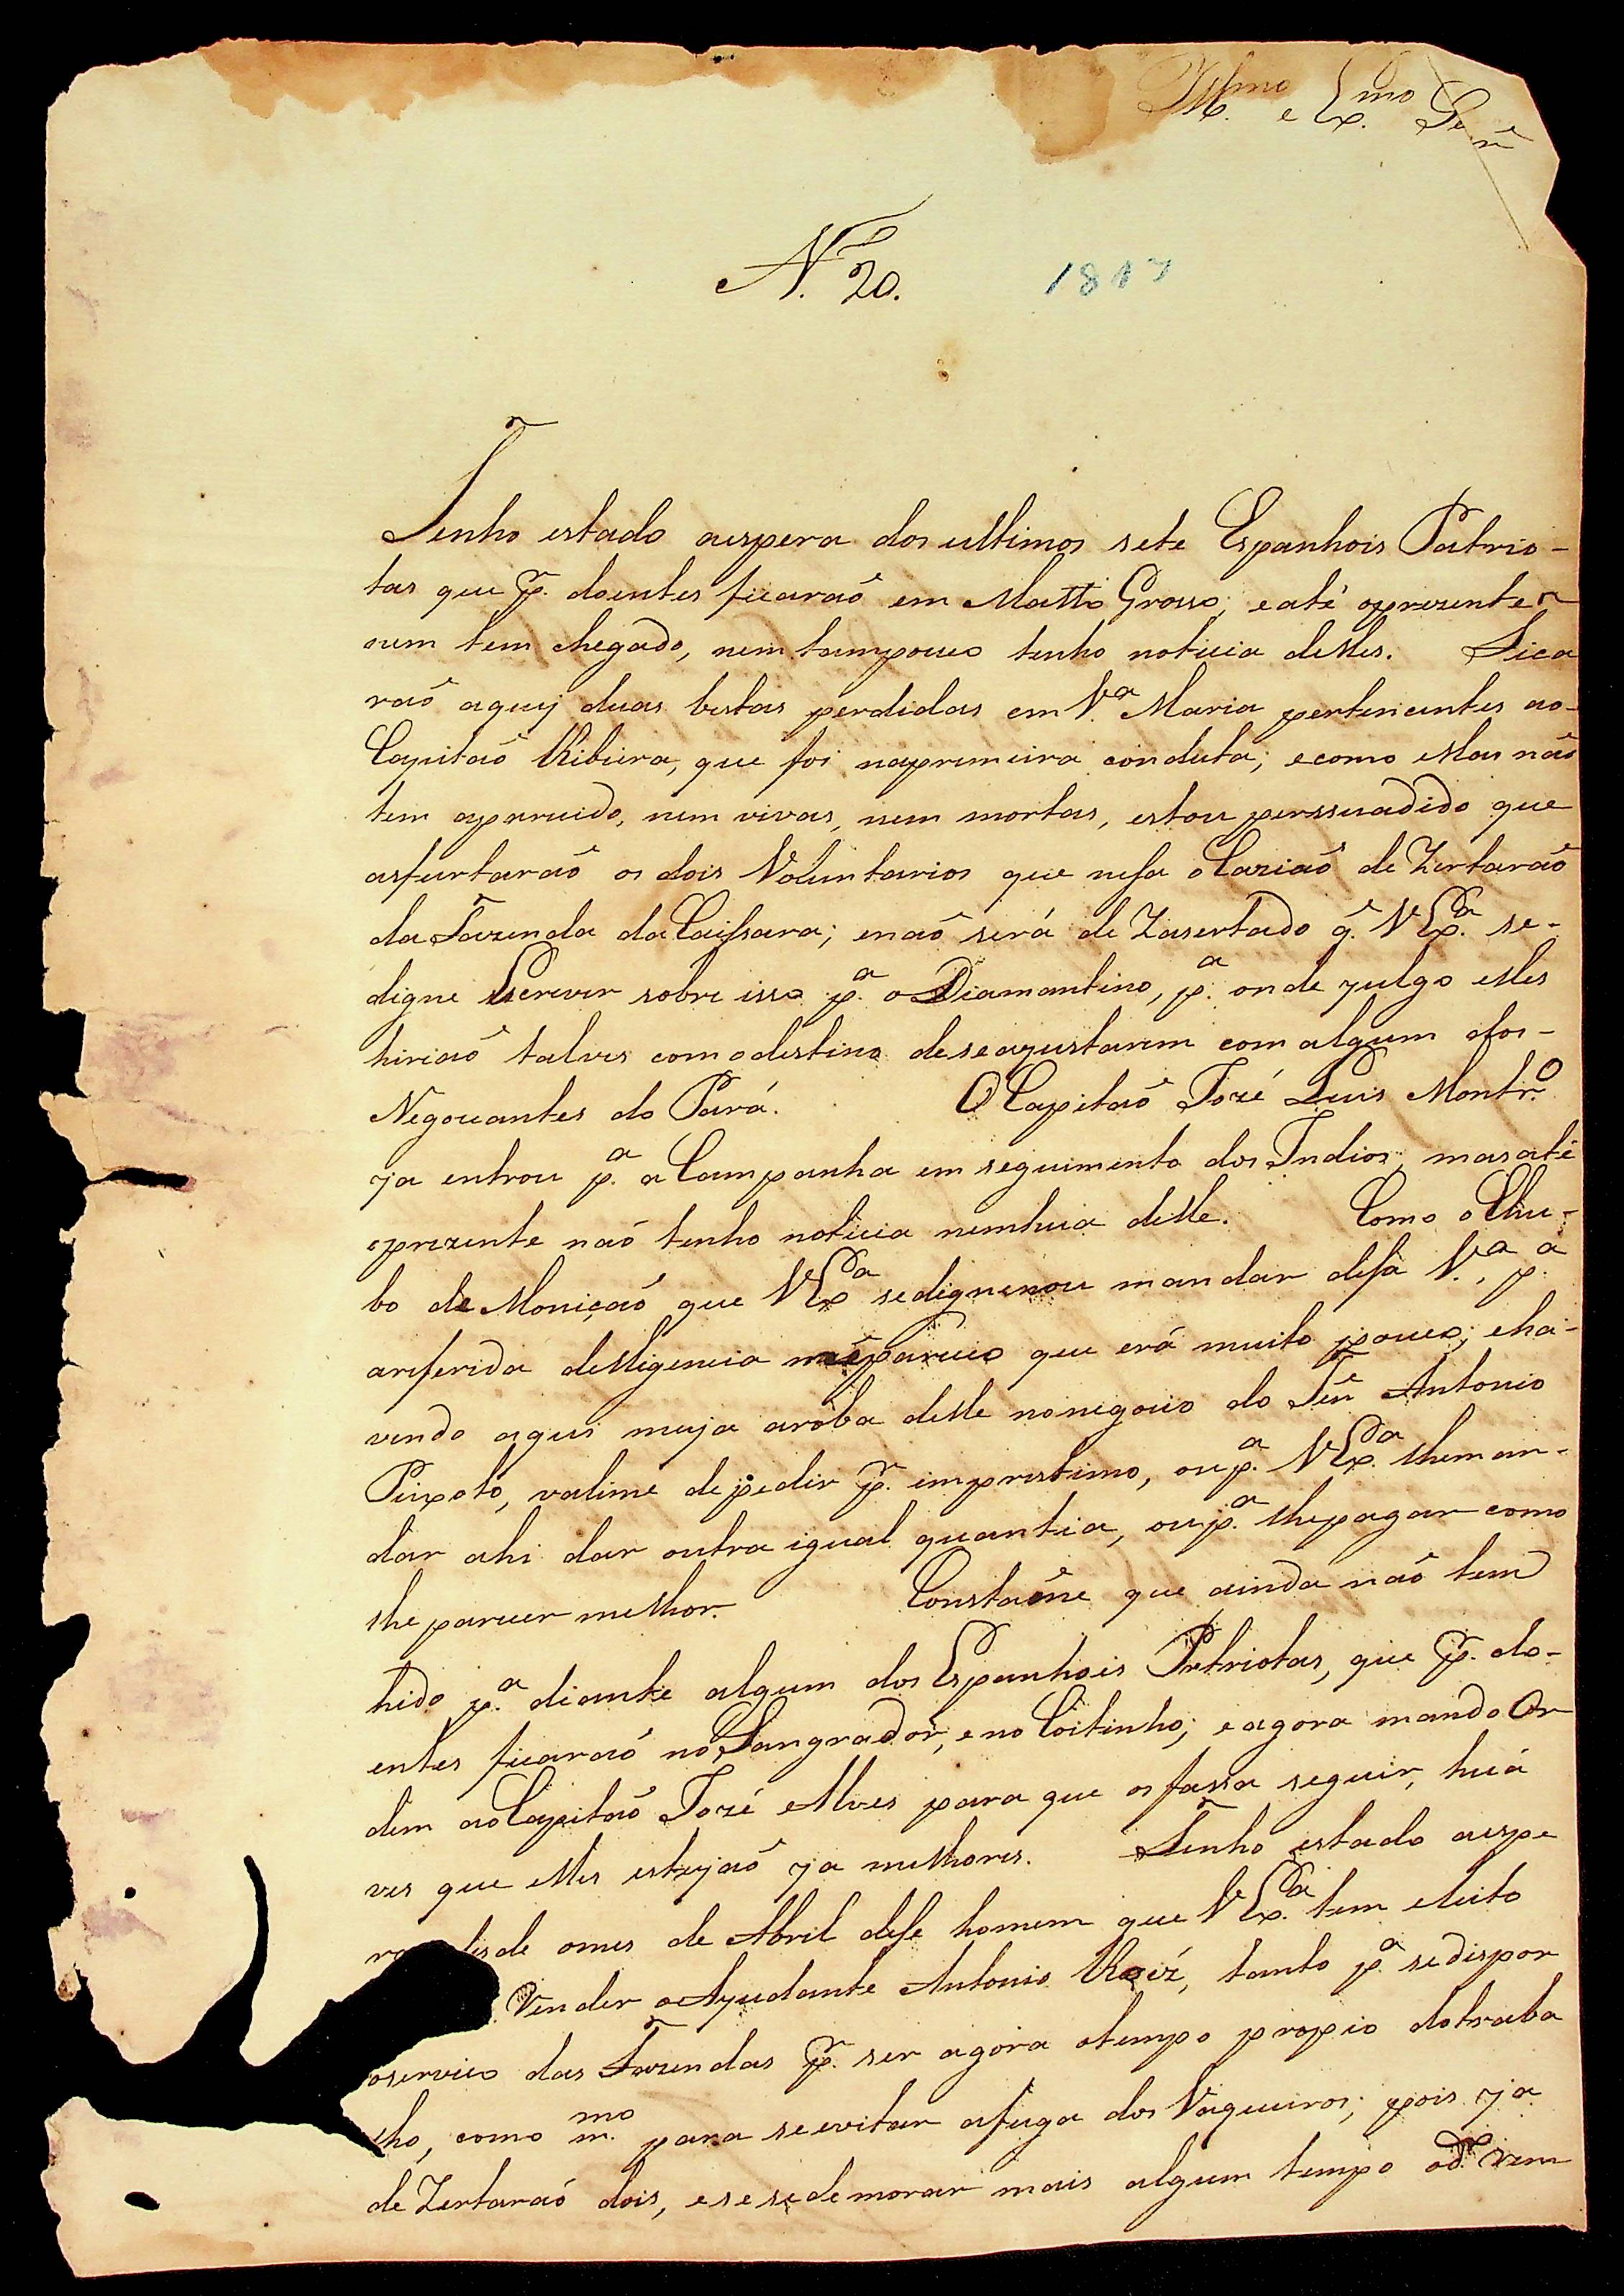 Ill.mo e Ex.mo Senr
N.o 20.
1817
Tenho estado aespera dos ultimos sete Espanhois Patrio-
tas que p.r doentes ficaraõ em Matto Grosso; e até oprezente
nem tem chegado, nem tampouco tenho noticia delles. Fica
raõ aquj duas bestas perdidas em V.a Maria pertencentes ao-
Capitaõ Ribeira, que foi naprimeira conduta; ecomo ellas naõ
tem aparecido, nem vivas, nem mortas, estou perssuadido que
asfurtaraõ os dois Voluntarios que nesa oCaziaõ deZertaraõ
da Fazenda daCaissara; enaõ será deZasertado q. V Ex.a se-
digne Escrever sobre isso p.a o Diamantino, p.a onde julgo elles
hiriaõ talves com odestino deseajustarem com algum dos-
Negociantes do Pará. O Capitaõ Jozé Luis Montr.o
ja entrou p.a a Campanha em seguimento dos Indios, mas até
oprezente naõ tenho noticia nemhua delle. Como oChu-
bo de Moniçaõ que V Ex.a sedignou mandar desa V.a, p.a
areferida delligencia meparecio que erá muito pouco; eha-
vendo aqui meja aroba delle nonegocio do Ten.e Antonio
Peixoto, valime depedir p.r imprestimo, oup.a V Ex.a lheman-
dar ahi dar outra igual quantia, oup.a lhepagar como
lhe parecer melhor. Constame que ainda naõ tem
hido p.a diante algum dos Espanhois Patriotas, que p.r do-
entes ficaraõ noSangrador, e no Coitinho; e agora mando Or
dem aoCapitaõ Jozé Alves para que os fassa seguir, huá
ves que elles estejaõ ja melhores. Tenho estado aespe
ra desde omes de Abril dese homem que V Ex.a tem eleito
Vender o Ajudante Antonio Roiz, tanto p.a sedispor
oservico das Fazendas p.r ser agora otempo propio dotraba
lho, como m.mo para seevitar afuga dos Vaqueiros; pois ja
deZertaraõ dois, e sesedemorar mais algum tempo od.o vem